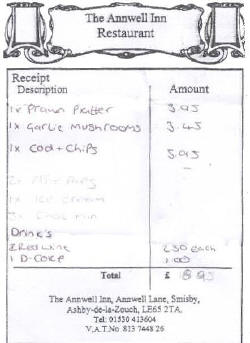 The Annwell Inn
Restaurant
Receipt
Description Amount
1x Prawn Platter 3.95
1x Garlic Mushrooms 3.45
1x Cod + Chips 5.95
1x Ice cream
Drink's
2 Red wine 2.50 each
1 D-Coke 1.00
Total £
The Annwell Inn, Annwell Lane, Smisby,
Ashby-de-la-Zouch, LE65 2TA.
Tel: 01530 413604
V.A.T.No 813 7448 26